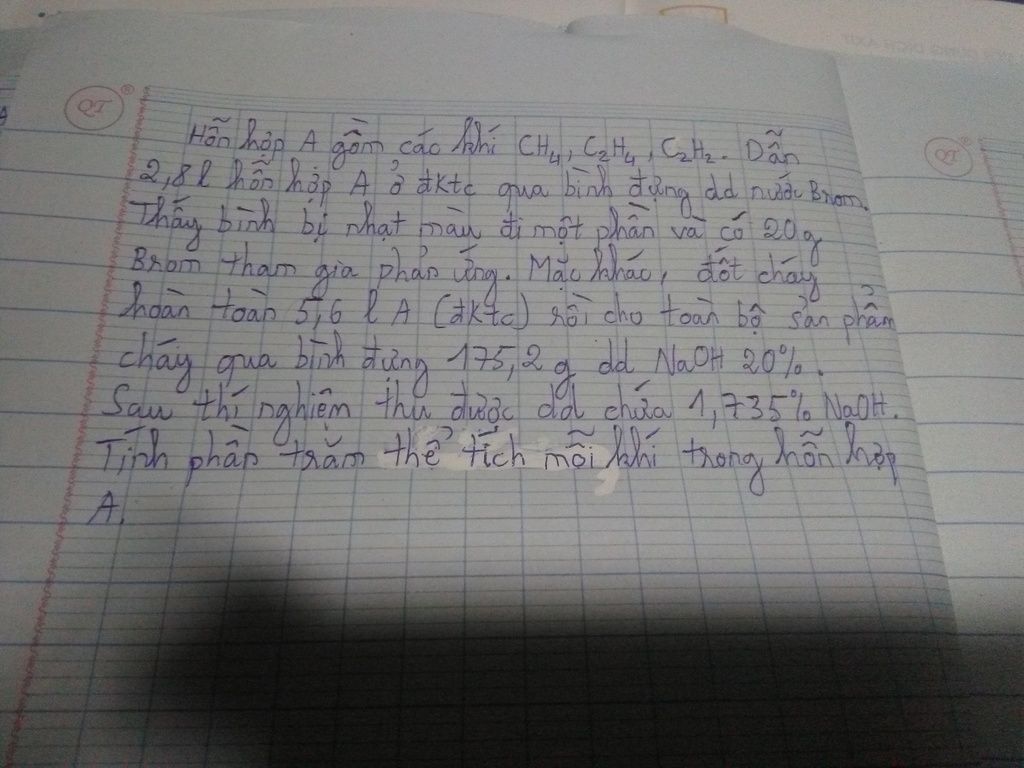 QT ®
Hỗn hợp A gồm các khí CH₄, C₂H₄, C₂H₂. Dẫn
2,8 l hỗn hợp A ở đktc qua bình đựng dd nước Brom.
Thấy bình bị nhạt màu đi một phần và có 20g
Brom tham gia phản ứng. Mặc khác, đốt cháy
hoàn toàn 5,6 l A (đktc) rồi cho toàn bộ sản phẩm
cháy qua bình đựng 175,2 g dd NaOH 20%.
Sau thí nghiệm thu được dd chứa 1,735% NaOH.
Tính phần trăm thể tích mỗi khí trong hỗn hợp
A.
QT